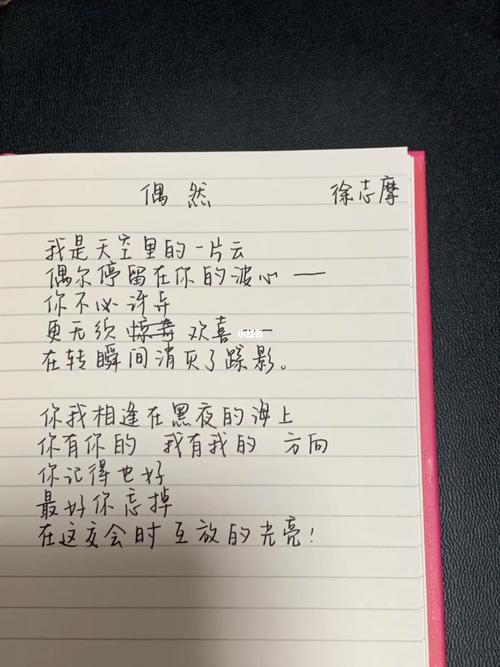 偶然 徐志摩
我是天空里的一片云
偶尔停留在你的波心——
你不必讶异
更无须 惊 欢喜 —
小红书
在转瞬间消灭了踪影。
你我相逢在黑夜的海上
你有你的 我有我的 方向
你记得也好
最好你忘掉
在这交会时互放的光亮!